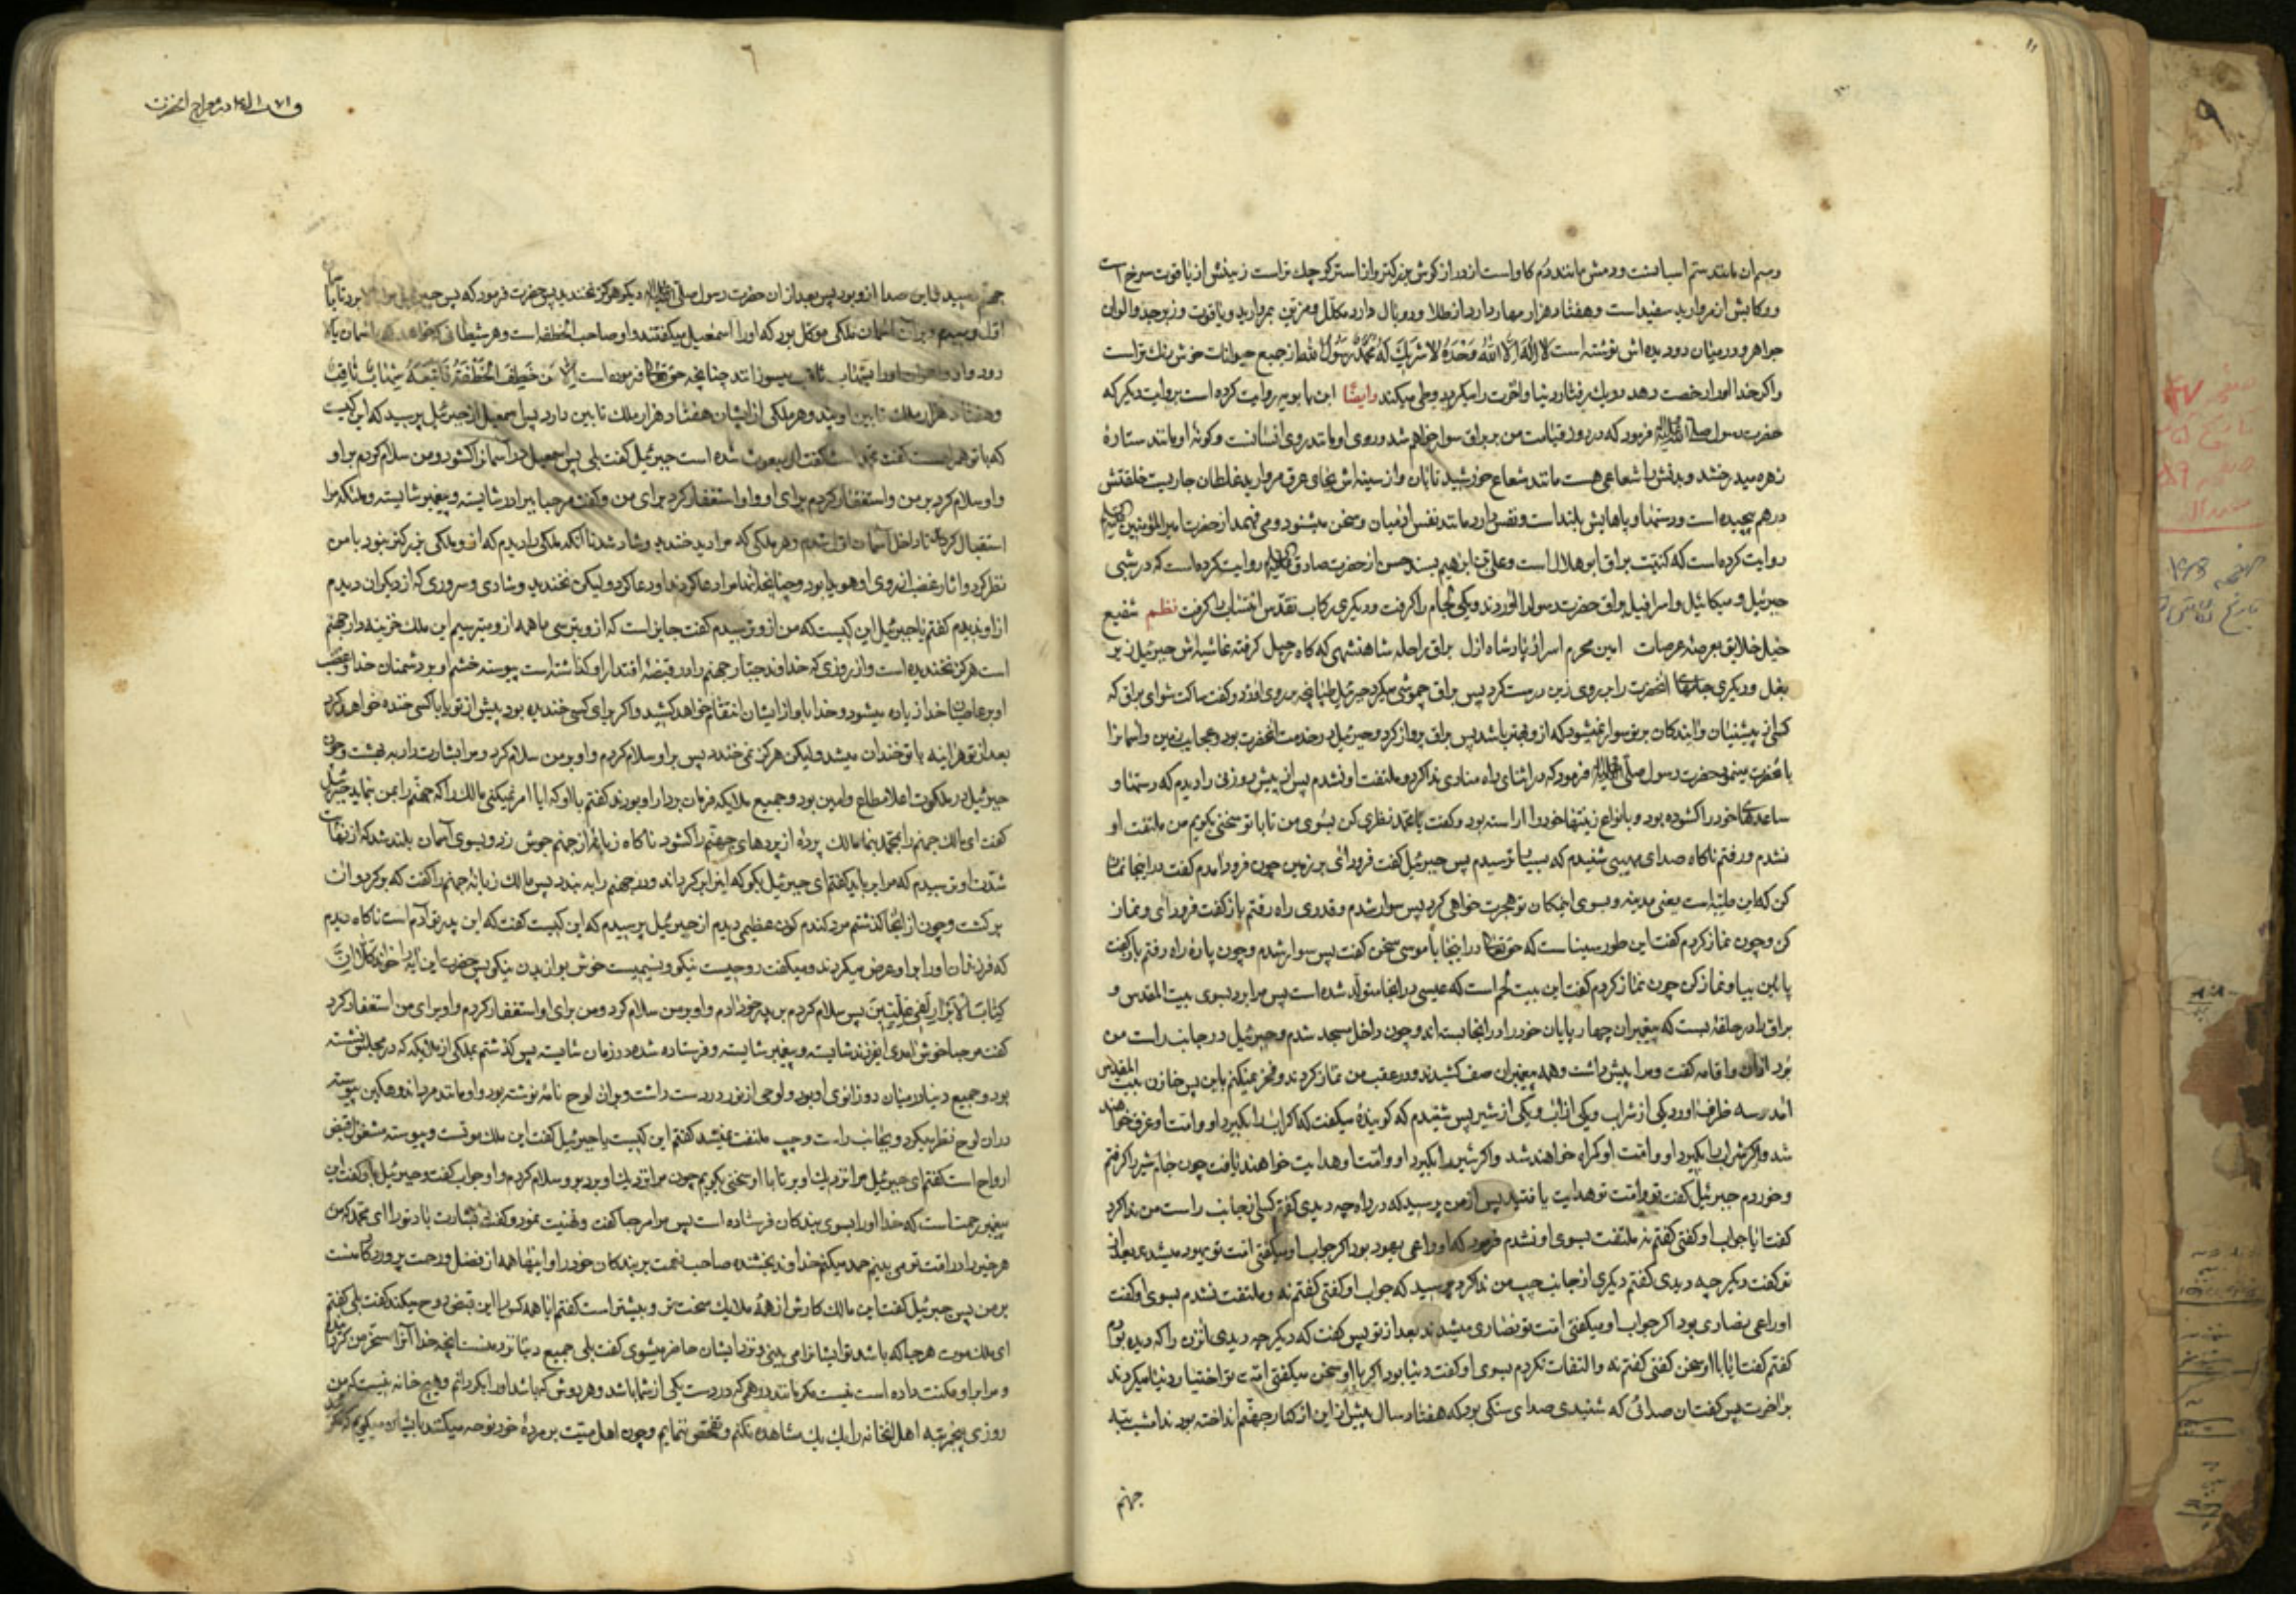 وسمان مانند ستم اسبانست و دمش مانند دم کاو است از دراز کوش بزرکتر و از استر کوچک تر است زینش از یاقوت سرخ است
و رکابش از مروارید سفید است و هفتاد هزار مهار دارد از طلا و دو بال دارد مکلل و مزین بمروارید و یاقوت و زبرجد و الوان
جواهر و در میان دو دیده اش نوشته است لا اله الا الله وحده لا شریک له محمد رسول الله از جمیع حیوانات خوش رنک تر است
و اکر خدا او را رخصت دهد در یک رفتار دنیا و اخرت را میکردد و طی میکند وایضا ابن بابویه روایت کرده است بروایت دیکر که
حضرت رسول صلی الله علیه واله فرمود که در روز قیامت من بر براق سوار خواهم شد و روی او مانند روی انسانست و کونه او مانند ستاره
زهره میدرخشد و بدنش با شعاعی هست مانند شعاع خورشید تابان و از سینه اش بجای عرق مروارید غلطان جاریست خلقتش
درهم پیچیده است و دستها و پاهایش بلند است و نفس دارد مانند نفس ادمیان و سخن میشنود و می فهمد از حضرت امیر المؤمنین
روایت کرده است که کنیت براق ابو هلال است و علی بن ابراهیم بسند حسن از حضرت صادق روایت کرده است که در شبی
جبرئیل و میکائیل و اسرافیل براق حضرت رسول اوردند و یکی لجام را کرفت و دیکری رکاب تقدس انتساب را کرفت نظم شفیع
خیل خلایق بعرصه عرصات امین محرم اسرار پادشاه ازل براق راحله شاهنشهی که کاه رحیل کرفته غاشیه اش جبرئیل زیر
بغل و دیکری جامهای انحضرت را بر روی زین درست کرد پس براق چموشی میکرد جبرئیل طپانچه بر روی او زد و کفت ساکت شو ای براق که
کسی از پیشینیان و ایندکان بر تو سوار نمیشود که از او بهتر باشد پس براق پرواز کرد و جبرئیل در خدمت انحضرت بود و عجایب زمین و اسمان را
بانحضرت مینمود حضرت رسول صلی الله علیه واله فرمود که در اثنای راه منادی ندا کرد و ملتفت او نشدم پس از پیش رو زنی را دیدم که دستها و
ساعدهای خود را کشوده بود و بانواع زینتها خود را اراسته بود و کفت یا محمد نظری کن بسوی من تا با تو سخنی بکویم من ملتفت او
نشدم و رفتم ناکاه صدای مهیبی شنیدم که بسیار ترسیدم پس جبرئیل کفت فرود ای بر زمین چون فرود امدم کفت در اینجا نماز
کن که این طیبه است یعنی مدینه و بسوی این مکان تو هجرت خواهی کرد پس سوار شدم و قدری راه رفتم باز کفت فرود ای و نماز
کن و چون نماز کردم کفت این طور سینا است که حق تعالی در اینجا با موسی سخن کفت پس سوار شدم و چون پاره راه رفتم باز کفت
پائین بیا و نماز کن چون نماز کردم کفت این بیت لحم است که عیسی در اینجا متولد شده است پس مرا برد بسوی بیت المقدس و
براق را در حلقه بست که پیغمبران چهارپایان خود را در انجا بسته اند و چون داخل مسجد شدم و جبرئیل در جانب راست من
بود اذان و اقامه کفت و مرا پیش داشت و همه پیغمبران صف کشیدند و در عقب من نماز کردند و فخر نمیکنم باین پس خازن بیت المقدس
امد و سه ظرف اورد یکی از شراب و یکی از آب و یکی از شیر پس شنیدم که کوینده میکفت که اکر اب را بکیرد او و امت او غرق خواهند
شد و اکر شراب را بکیرد او و امت او کمراه خواهند شد و اکر شیر را بکیرد او و امت او هدایت خواهند یافت چون جام شیر را کرفتم
و خوردم جبرئیل کفت تو و امت تو هدایت یافتید پس از من پرسید که در راه چه دیدی کفتم کسی از جانب راست من ندا کرد
کفت ایا جواب او کفتی کفتم نه ملتفت بسوی او نشدم فرمود که او داعی یهود بود اکر جواب او میکفتی امت تو یهود میشدند بعد از
تو کفت دیکر چه دیدی کفتم دیکری از جانب چپ من ندا کرد پرسید که جواب او کفتی کفتم نه و ملتفت نشدم بسوی او کفت
او داعی نصاری بود اکر جواب او میکفتی امت تو نصاری میشدند بعد از تو پس کفت که دیکر چه دیدی انزن را که دیده بودم
کفتم کفت ایا با او سخن کفتی کفتم نه و التفات نکردم بسوی او کفت او دنیا بود اکر با او سخن میکفتی امت تو اختیار دنیا میکردند
بر اخرت پس کفت ان صدائی که شنیدی صدای سنکی بود که هفتاد سال پیش از این از کنار جهنم انداخته بودند امشب بته
جهنم
جهنم رسید و این صدا از و بود پس بعد از ان حضرت رسول صلی الله علیه واله دیکر هرکز نخندید پس حضرت فرمود که پس جبرئیل مرا بالا برد تا باسمان
اول رسیدم و بر ان اسمان ملکی موکل بود که او را اسمعیل میکفتند و او صاحب الخطفه است و هر شیطانی که خواهد که باسمان بالا
رود و او و اعوان او را بشهاب ثاقب میسوزانند چنانچه حق تعالی فرموده است الا من خطف الخطفة فاتبعه شهاب ثاقب
و هفتاد هزار ملک تابین اویند و هر ملکی از ایشان هفتاد هزار ملک تابین دارد پس اسمعیل از جبرئیل پرسید که این کیست
که با تو همراست کفت محمد است کفت او مبعوث شده است جبرئیل کفت بلی پس اسمعیل در آسمان را کشود و من سلام کردم بر او
و او سلام کرد بر من و استغفار کردم برای او و او استغفار کرد برای من و کفت مرحبا ببرادر شایسته و پیغمبر شایسته و ملئکه مرا
استقبال کردند تا داخل اسمان اول شدم و هر ملکی که مرا دید خندید و شاد شد تا انکه ملکی را دیدم که از و ملکی بزرکتر نبود با من
نظر کرد و اثار غضب از روی او هویدا بود و چنانچه انها مرا دعا کردند او دعا کرد و لیکن نخندید و شادی و سروری که از دیکران دیدم
از او ندیدم کفتم یا جبرئیل این کیست که من از و ترسیدم کفت جایز است که از و بترسی ما همه از و میترسیم این ملک خزینه دار جهنم
است هرکز نخندیده است و از روزی که خداوند جبار جهنم را در قبضه اقتدار او کذاشته است پیوسته خشم او بر دشمنان خدا و غضب
او بر عاصیان خدا زیاده میشود و خدا باو از ایشان انتقام خواهد کشید و اکر برای کسی خندیده بود پیش از تو یا با کسی خنده خواهد کرد
بعد از تو هراینه با تو خندان میشد و لیکن هرکز نمی خندد پس بر او سلام کردم و او بر من سلام کرد و مرا بشارت داد به بهشت و چون
جبرئیل در ملکوت اعلا مطاع و امین بود و جمیع ملائکه فرمان بردار او بودند کفتم باو که ایا امر نمیکنی مالک را که جهنم را بمن بنماید جبرئیل
کفت ای مالک جهنم را بمحمد بنما مالک پرده از پردهای جهنم را کشود ناکاه زبانه از جهنم جوش زد و بسوی آسمان بلند شد که از نهایت
شدت او ترسیدم که مرا برباید کفتم ای جبرئیل بکو که اینرا برکرداند و در جهنم را به بندد پس مالک زبانه جهنم را کفت که برکرد و ان
برکشت و چون از انجا کذشتم مرد کندم کون عظیمی دیدم از جبرئیل پرسیدم که این کیست کفت که این پدر تو آدم است ناکاه دیدم
که فرزندان او را بر او عرض میکردند و میکفت روحیست نیکو و نسیمیست خوش بو از بدن نیکو پس حضرت این آیه را خواند کلا ان
کتاب الابرار لفی علیین پس سلام کردم بر پدر خود ادم و او بر من سلام کرد و من برای او استغفار کردم و او برای من استغفار کرد
کفت مرحبا خوش آمدی ایفرزند شایسته و پیغمبر شایسته و فرستاده شده در زمان شایسته پس کذشتم بملکی از ملائکه که در مجلس نشسته
بود و جمیع دنیا در میان دو زانوی او بود و لوحی از نور در دست داشت و بران لوح نامه نوشته بود و او مانند مرد اندوهکین پیوسته
در ان لوح نظر میکرد و بجانب راست و چپ ملتفت نمیشد کفتم این کیست یا جبرئیل کفت این ملک موتست و پیوسته مشغول قبض
ارواح است کفتم ای جبرئیل مرا نزدیک او بر تا با او سخنی بکویم چون مرا نزدیک او برد بر و سلام کردم و او جواب کفت و جبرئیل باو کفت این
پیغمبر رحمت است که خدا او را بسوی بندکان فرستاده است پس مرا مرحبا کفت و تهنیت نمود و کفت بشارت باد تو را ای محمد که من
هر خیر را در امت تو می بینم حمد میکنم خداوند بخشنده صاحب نعمت بر بندکان خود را و اینها همه از فضل و رحمت پروردکار منست
بر من پس جبرئیل کفت این مالک کارش از همه ملایک سخت تر و بیشتر است کفتم ایا هر که را این قبض روح میکند کفت بلی کفتم
ای ملک موت هر جا که باشند تو ایشانرا می بینی و نزد ایشان حاضر میشوی کفت بلی جمیع دنیا نزد منست انچه خدا آنرا مسخر من کردانیده
و مرا بر او مکنت داده است نیست مکر مانند درهمی که در دست یکی از شما باشد و هر روش که باشد او را بکردانم و هیچ خانه نیست که من
روزی پنج مرتبه اهل انخانه را یک یک مشاهده نکنم و تفحص ننمایم و چون اهل میت بر مرده خود نوحه میکنند بایشان میکویم که